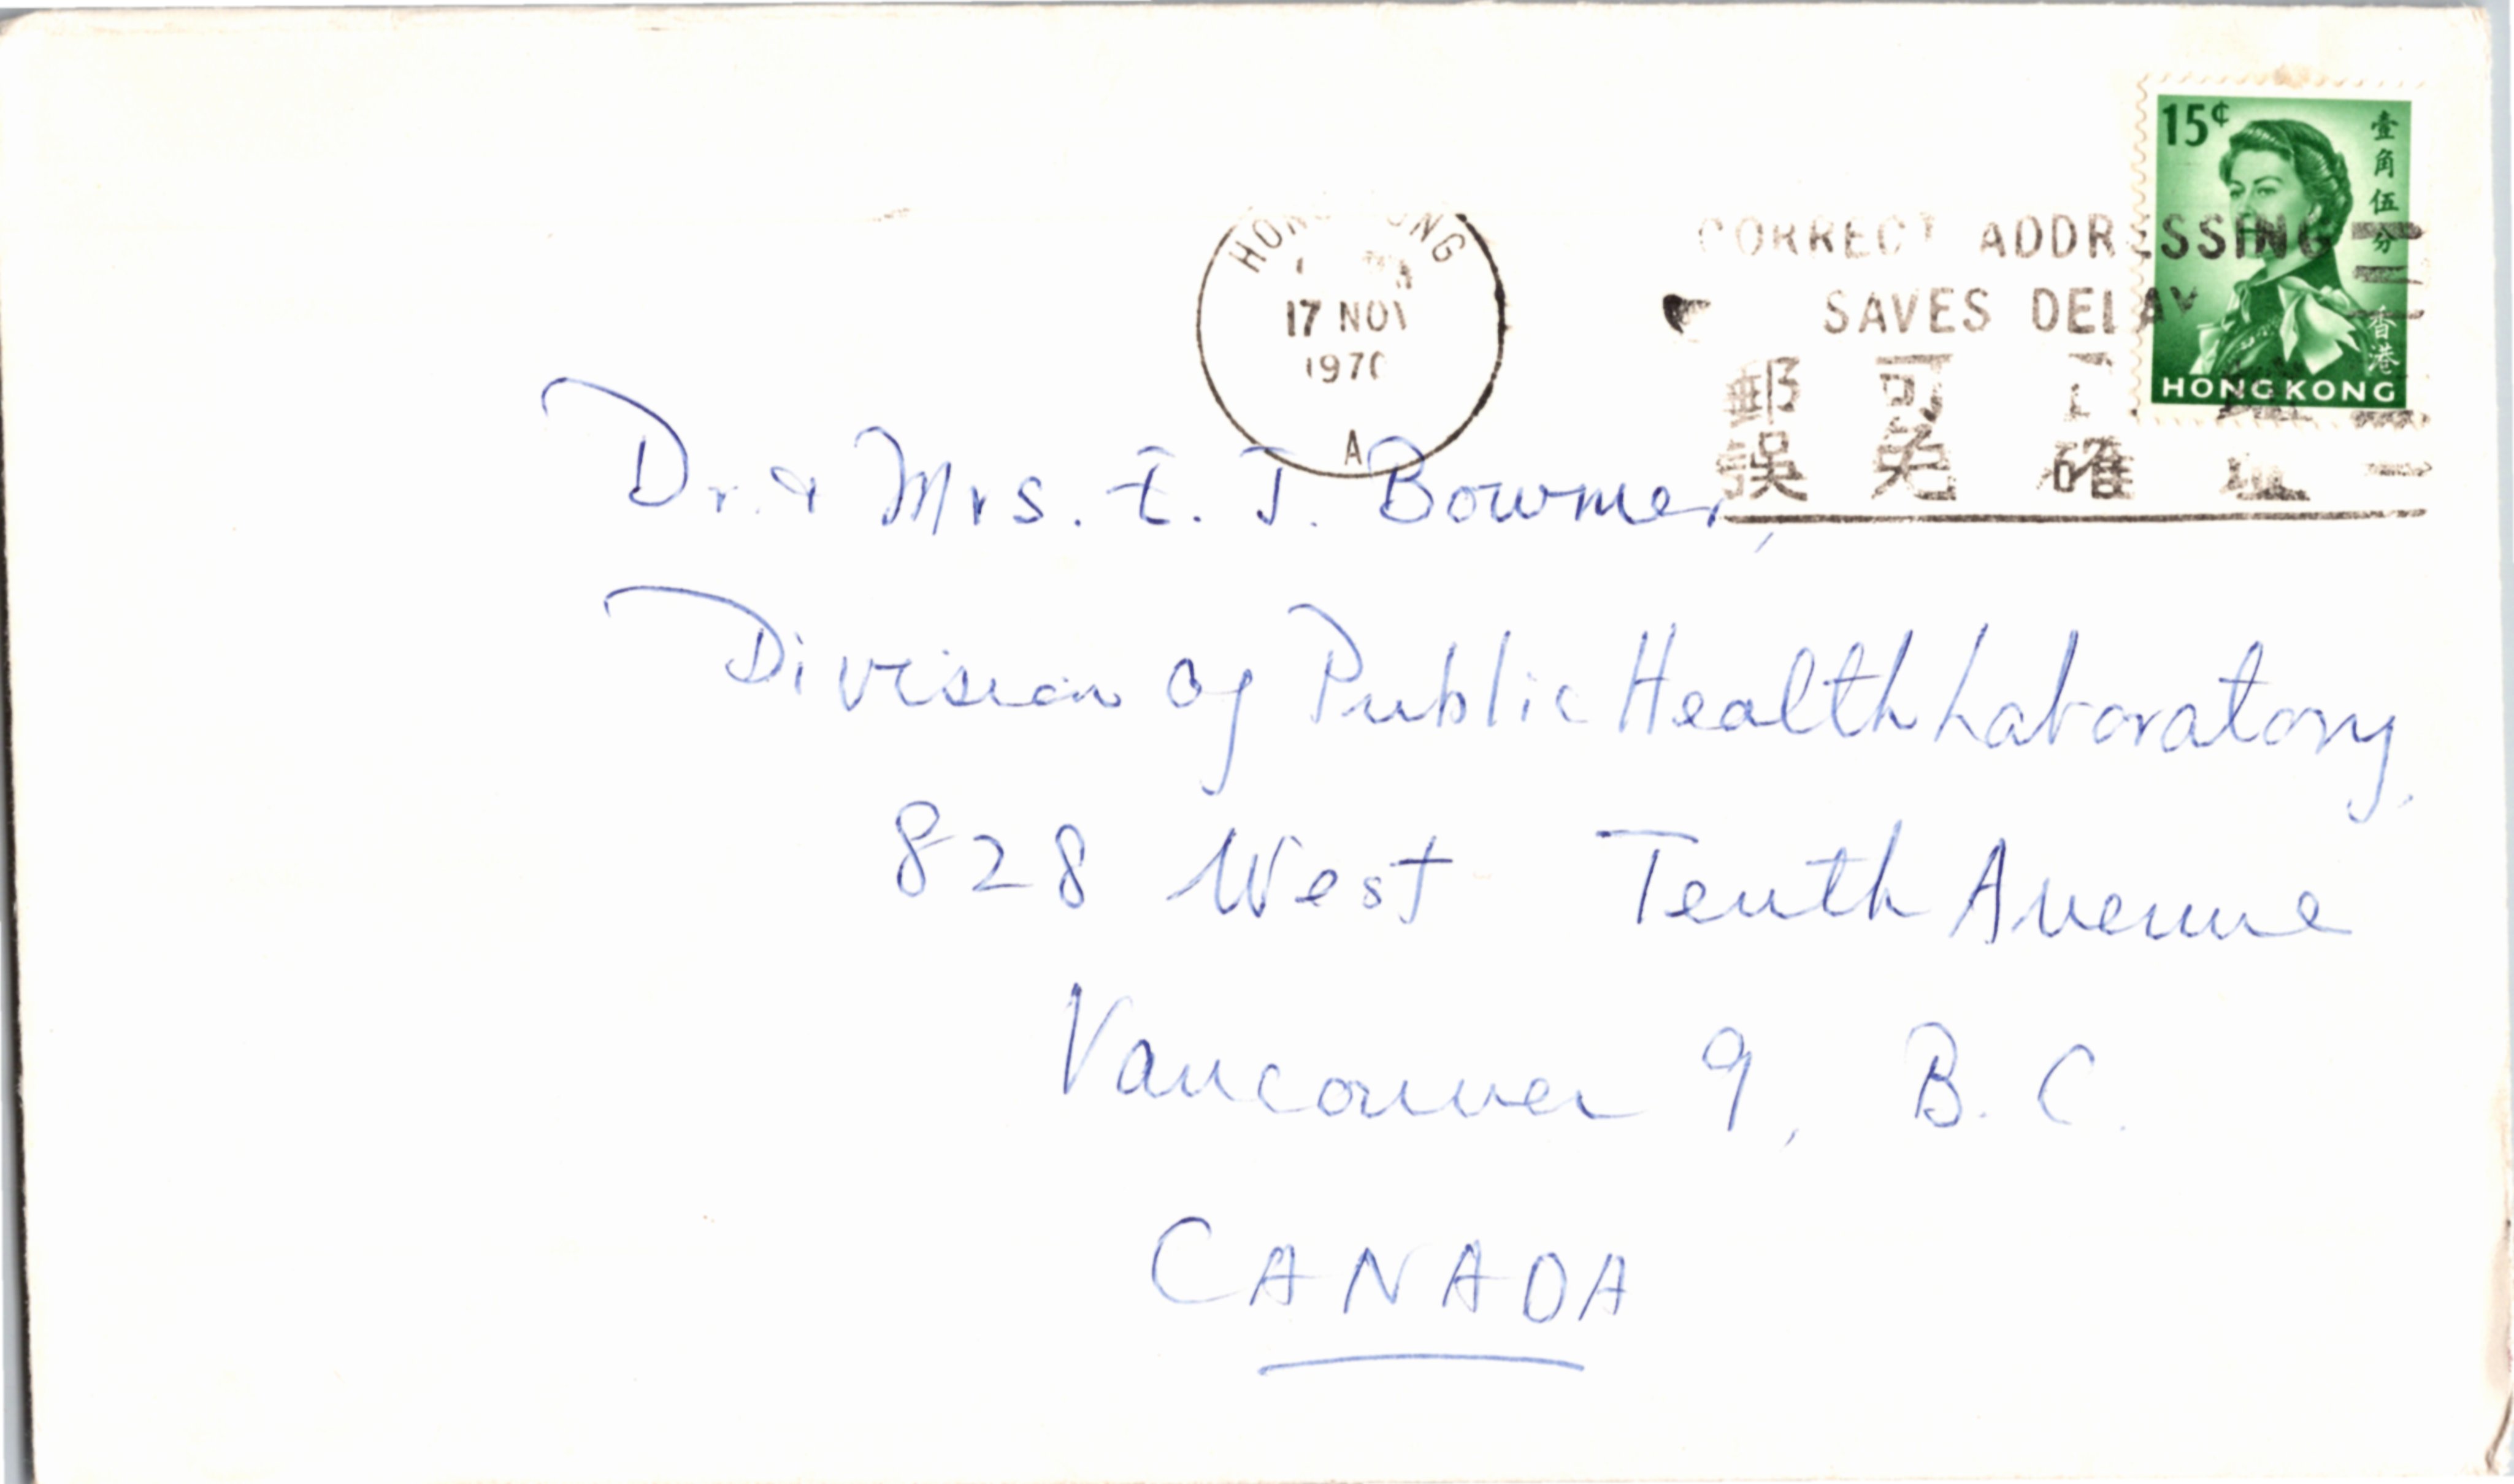 15¢
壹角伍分
香港
HONG KONG
HONG KONG
17 NOV
1970
A
CORRECT ADDRESSING
SAVES DELAY
郵 可
誤 免 確
Dr. & Mrs. E. J. Bowmer,
Division of Public Health Laboratory,
828 West Tenth Avenue
Vancouver 9, B. C.
CANADA